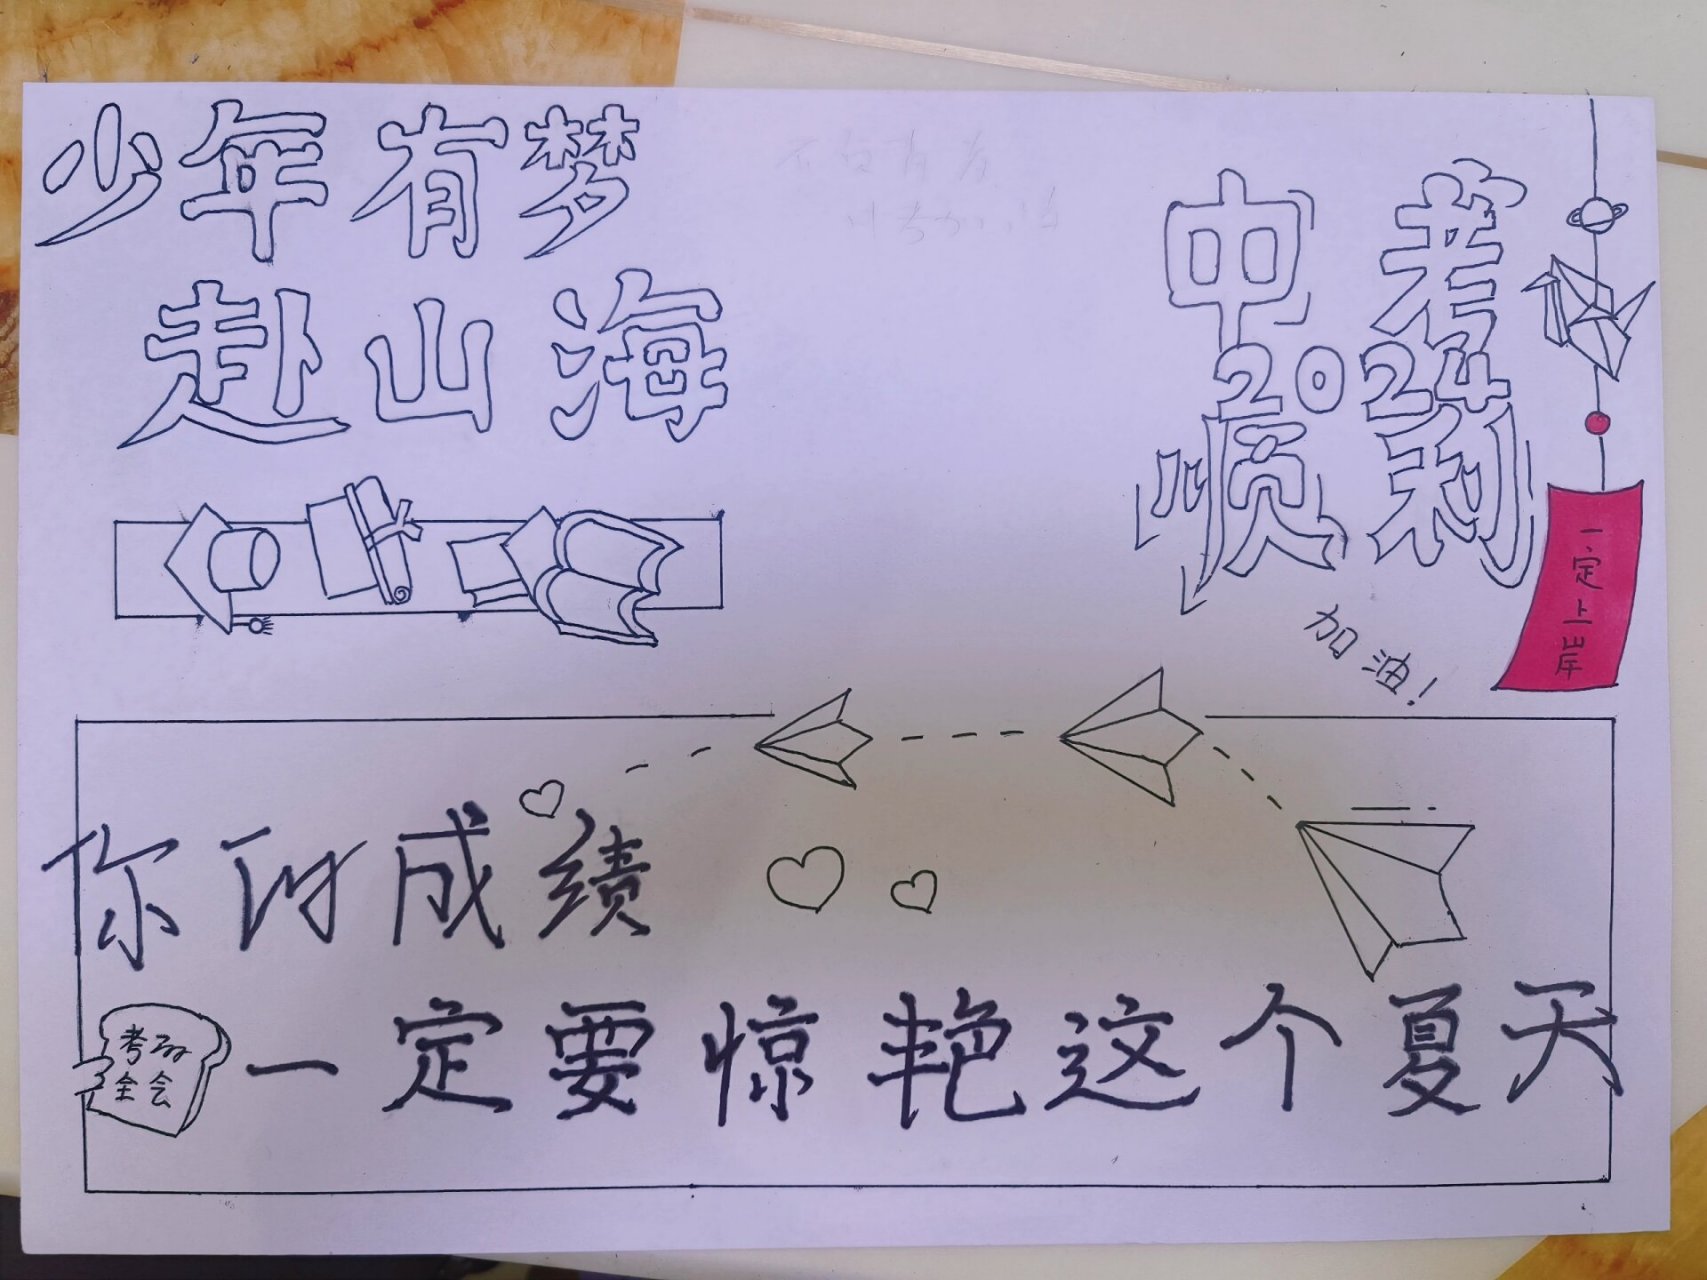 少年有梦
赴山海
中考
2024
顺利
加油！
一定上岸
你的成绩
一定要惊艳这个夏天
考的
全会